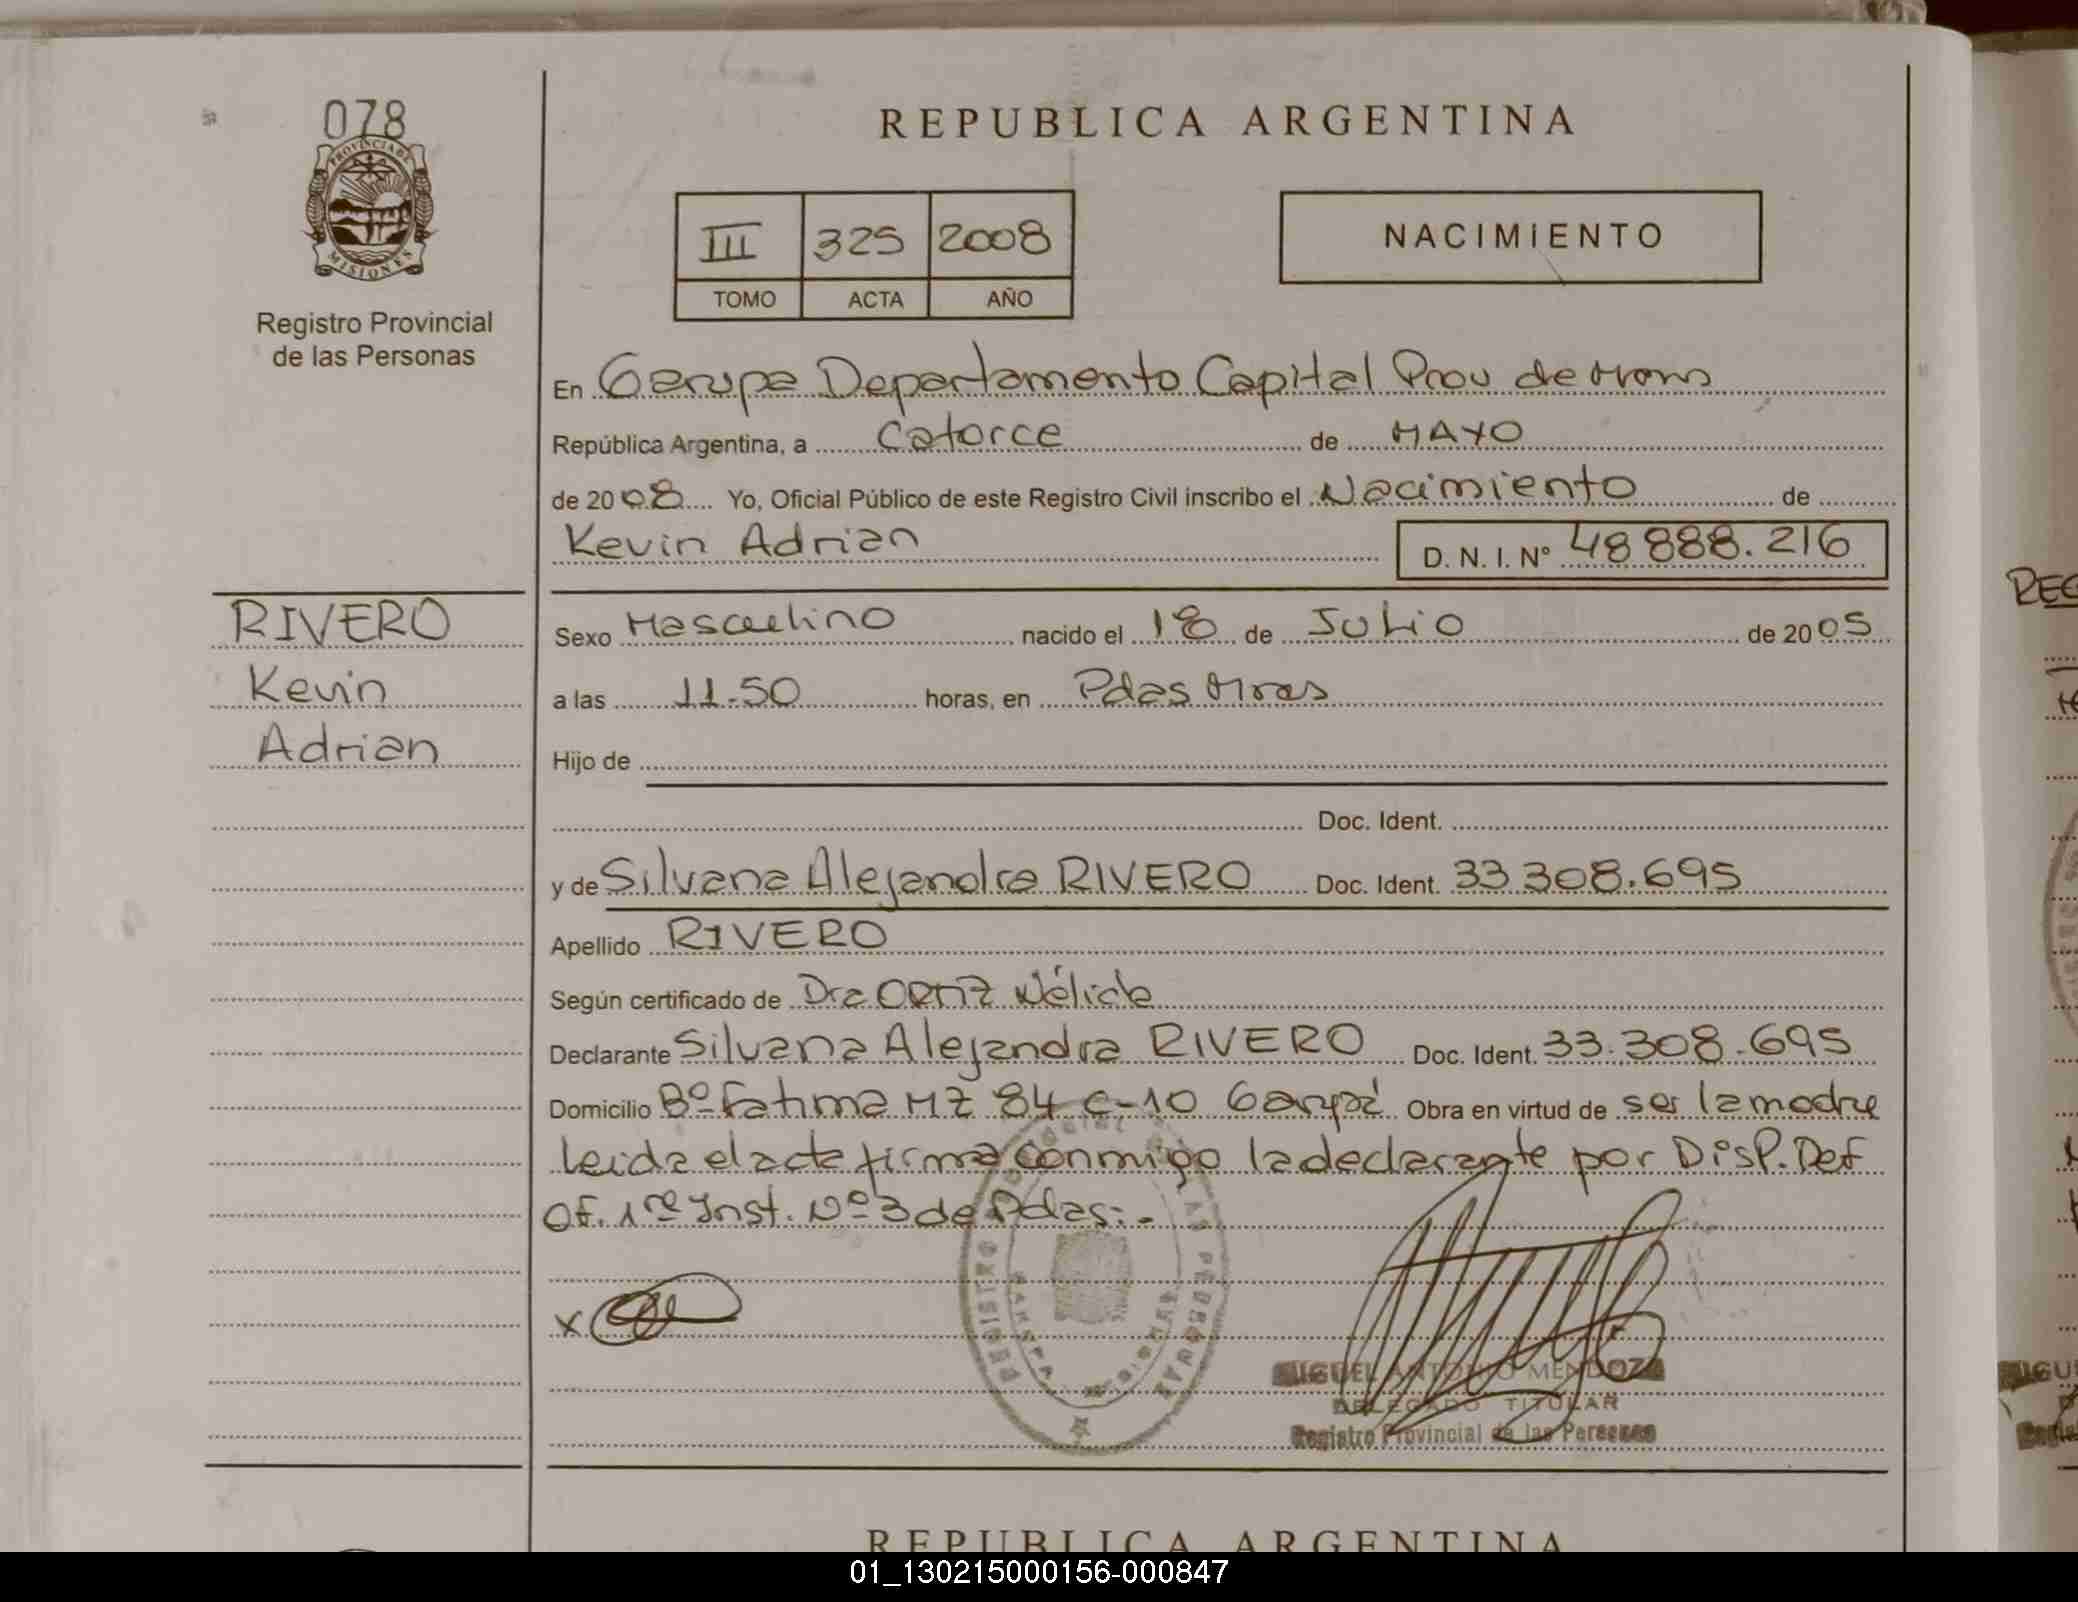 078
PROVINCIA DE
MISIONES
Registro Provincial
de las Personas
RIVERO
Kevin
Adrian
REPUBLICA ARGENTINA
III 325 2008
TOMO ACTA AÑO
NACIMIENTO
En Garupa Departamento Capital Prov de
República Argentina, a Catorce de MAYO
de 2008 Yo, Oficial Público de este Registro Civil inscribo el Nacimiento de
Kevin Adrian D. N. I. Nº 48 888.216
Sexo Masculino nacido el 18 de Julio de 2005
a las 11.50 horas, en Pdas
Hijo de
Doc. Ident.
y de Silvana Alejandra RIVERO Doc. Ident. 33 308.695
Apellido RIVERO
Según certificado de Dra ORTIZ Nélida
Declarante Silvana Alejandra RIVERO Doc. Ident. 33.308.695
Domicilio Bº Fatima MZ 84 C-10 Garupá Obra en virtud de ser la madre
leida el acta firma conmigo la declarante por Disp. Def
Of. 1ra Inst. Nº 3 de Pdas.-
X
MIGUEL ANTONIO MENDOZA
DELEGADO TITULAR
Registro Provincial de las Personas
REPUBLICA ARGENTINA
01_130215000156-000847